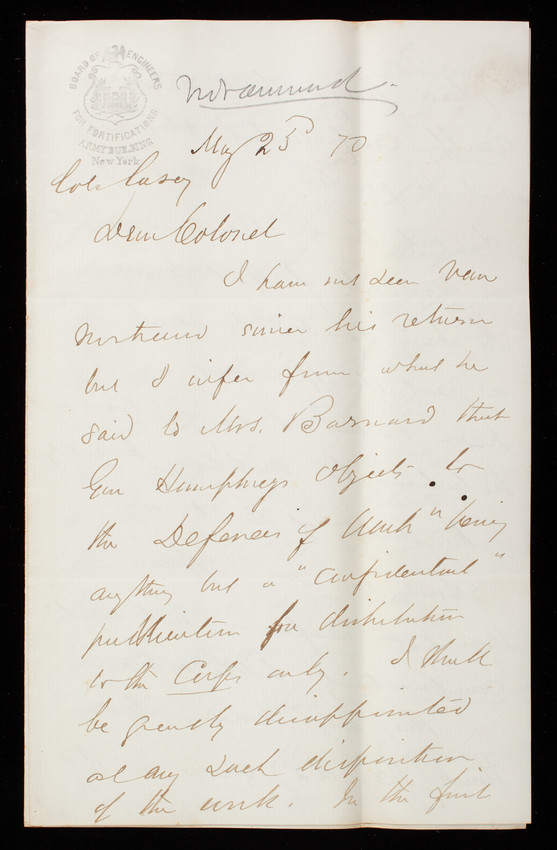 BOARD OF ENGINEERS
FOR FORTIFICATIONS
ARMY BUILDING
New York
May 23d 70
Col. Casey
Dear Colonel
I have not seen Van
Nostrand since his return
but I infer from what he
said to Mrs. Barnard that
Gen Humphreys objects to
the Defences of Wash" being
anything but a "confidential"
publication for distribution
to the Corps only. I shall
be greatly disappointed
at any such disposition
of the work. In the first